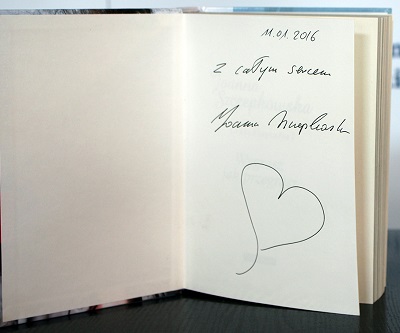 11.01.2016
z całym sercem
Joanna